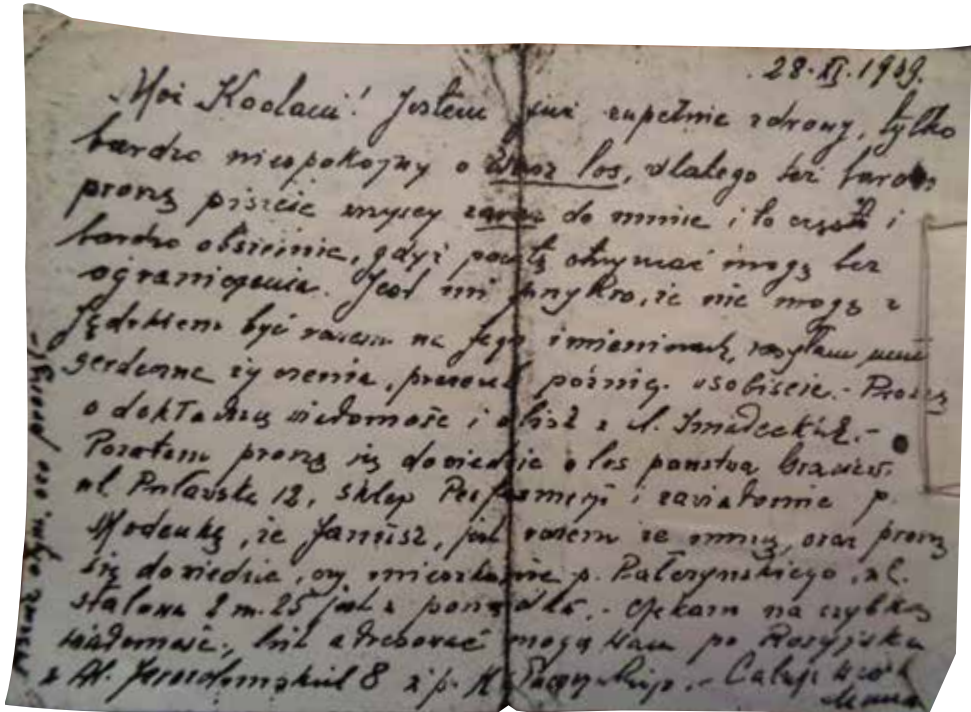 28.XI.1939.
Moi Kochani! Jestem już zupełnie zdrowy, tylko
bardzo niespokojny o Wasz los, dlatego też bardzo
proszę piszcie wszyscy zaraz do mnie i to często i
bardzo obszernie, gdyż pocztę otrzymać mogę bez
ograniczenia. Jest mi przykro, że nie mogę z
być razem na Jego imieninach,
serdeczne życzenia, później osobiście.- Proszę
o dokładną wiadomość i o list z ul. Śniadeckich.-
Pozatem proszę się dowiedzieć o los państwa
ul. Puławska 12, sklep Perfumerji i zawiadomić p.
że Janusz, jest razem ze mną, oraz proszę
się dowiedzieć, czy mieszkanie p. ul.
Stalowa 2 m. 25 jest w porządku.- Czekam na szybką
wiadomość, list adresować mogą Wam po Rosyjsku
z Al. Jerozolimskich 8 p. Całuję